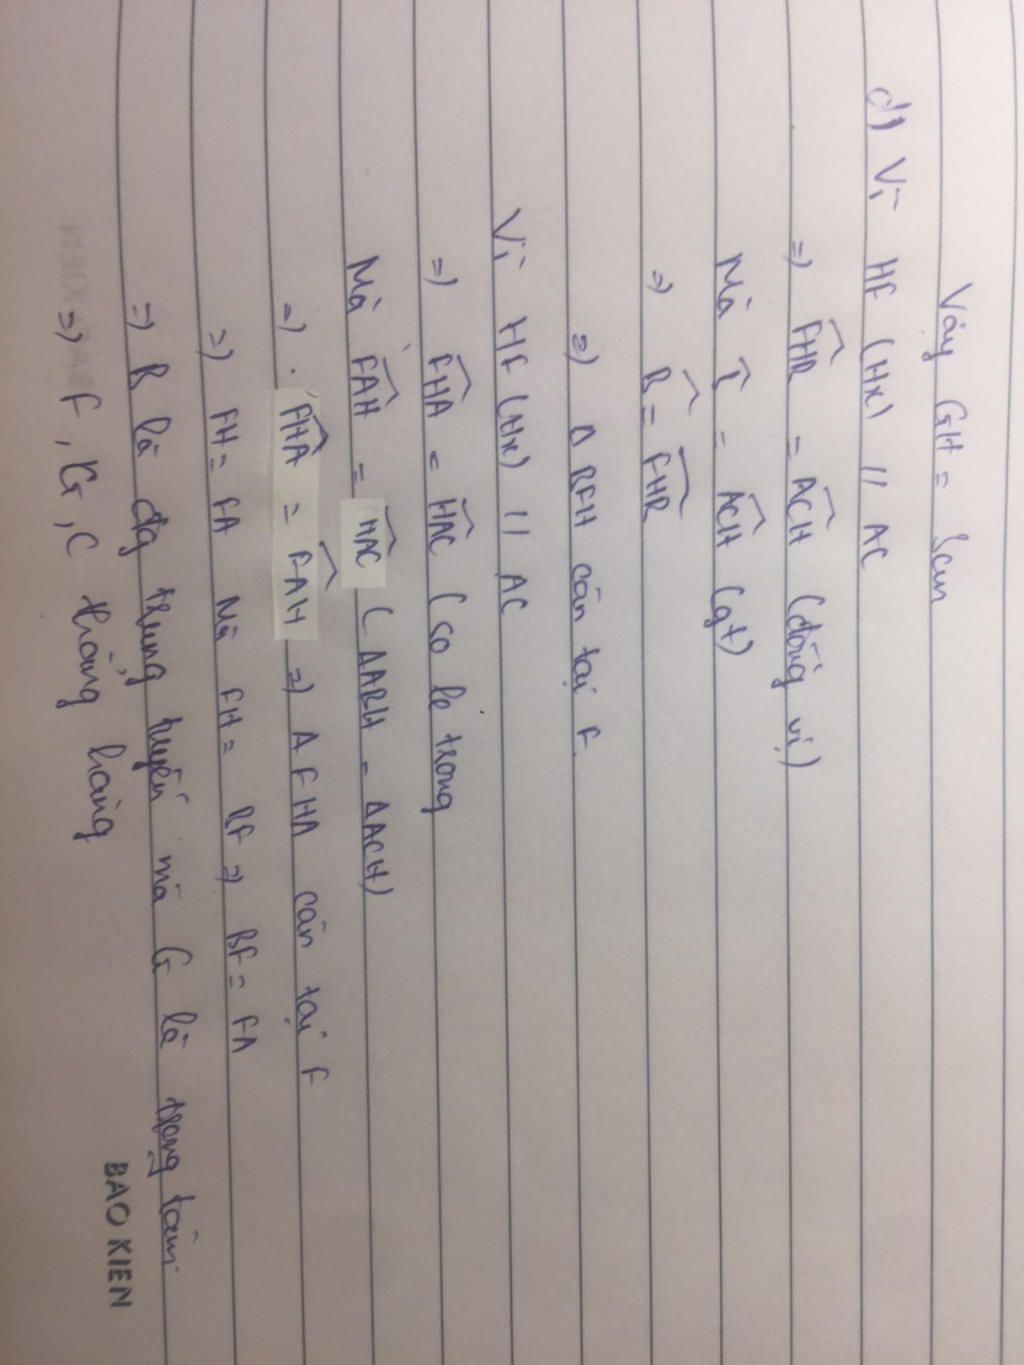 Vậy GH = 3cm
d) Vì HF (Hx) // AC
=) FHB = ACH (đồng vị)
Mà B = ACH (gt)
=) B = FHB
=) Δ BFH cân tại F.
Vì HF (Hx) // AC
=) FHA = HAC (so le trong
Mà FAH = HAC ( ΔABH = ΔACH)
=) . FHA = FAH =) Δ FHA cân tại F
=) FH = FA Mà FH = BF =) BF = FA
=) là đg trung tuyến mà G là trọng tâm.
=) F, G, C thẳng hàng
BAO KIEN